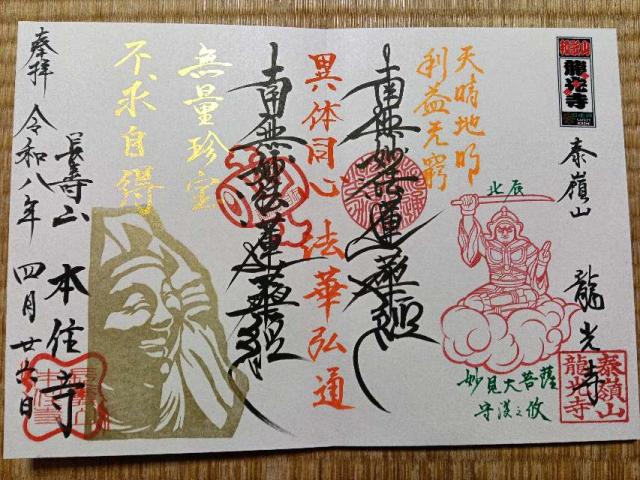 和歌山
龍光寺
泰嶺山
龍光寺
泰嶺山
龍光寺
天晴地明
利益无窮
北辰
妙見大菩薩
守護之攸
南無妙法蓮華経
異体同心 法華弘通
南無妙法蓮華経
無量珍宝
不求自得
長壽山
本住寺
奉拝
令和八年 四月廿六日